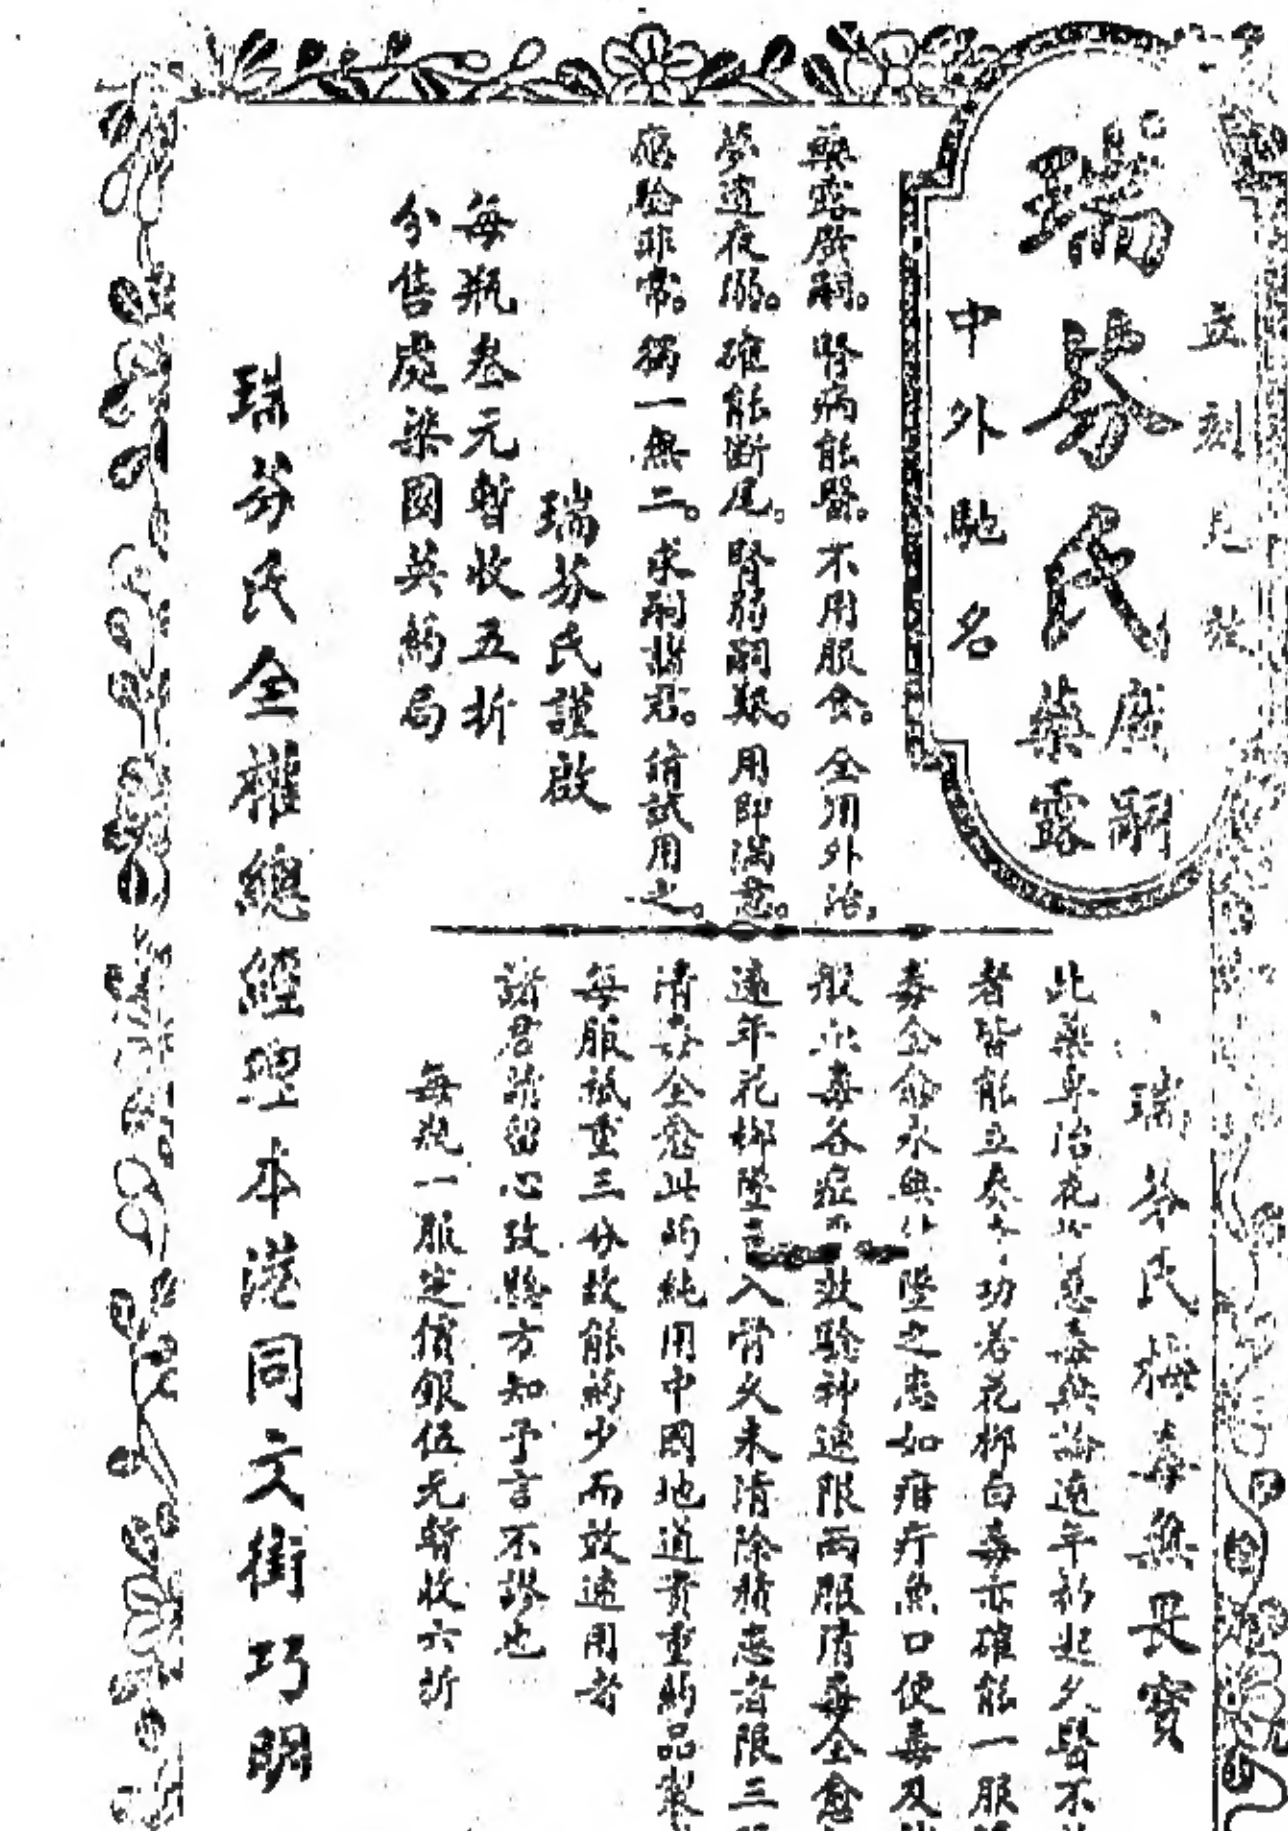 立刻見效
瑞芬氏
廣嗣
藥露
中外馳名
藥露廣嗣。腎病能醫。不用服食。全用外治。
夢遺夜溺。確能斷尾。腎弱嗣艱。用即滿意。
應驗非常。獨一無二。求嗣諸君。請試用之。
瑞芬氏謹啟
每瓶叁元暫收五折
分售處梁國英葯局
瑞芬氏梅毒無畏寶
此藥專治花 毒無論遠年新起久醫不
者皆能立奏 功若花柳白毒亦確能一服
毒全愈永無 墮之患如疳疔魚口便毒及
般 毒各症 效驗神速限兩服清毒全愈
遠年花柳墜 入骨久未清除積患者限三
清毒全愈此葯純用中國地道貴重葯品製
每服祗重三分故能葯少而效速用者
諸君請留心攷驗方知予言不謬也
每瓶一服定價銀伍元暫收六折
瑞芬氏全權總經理本港同文街巧明